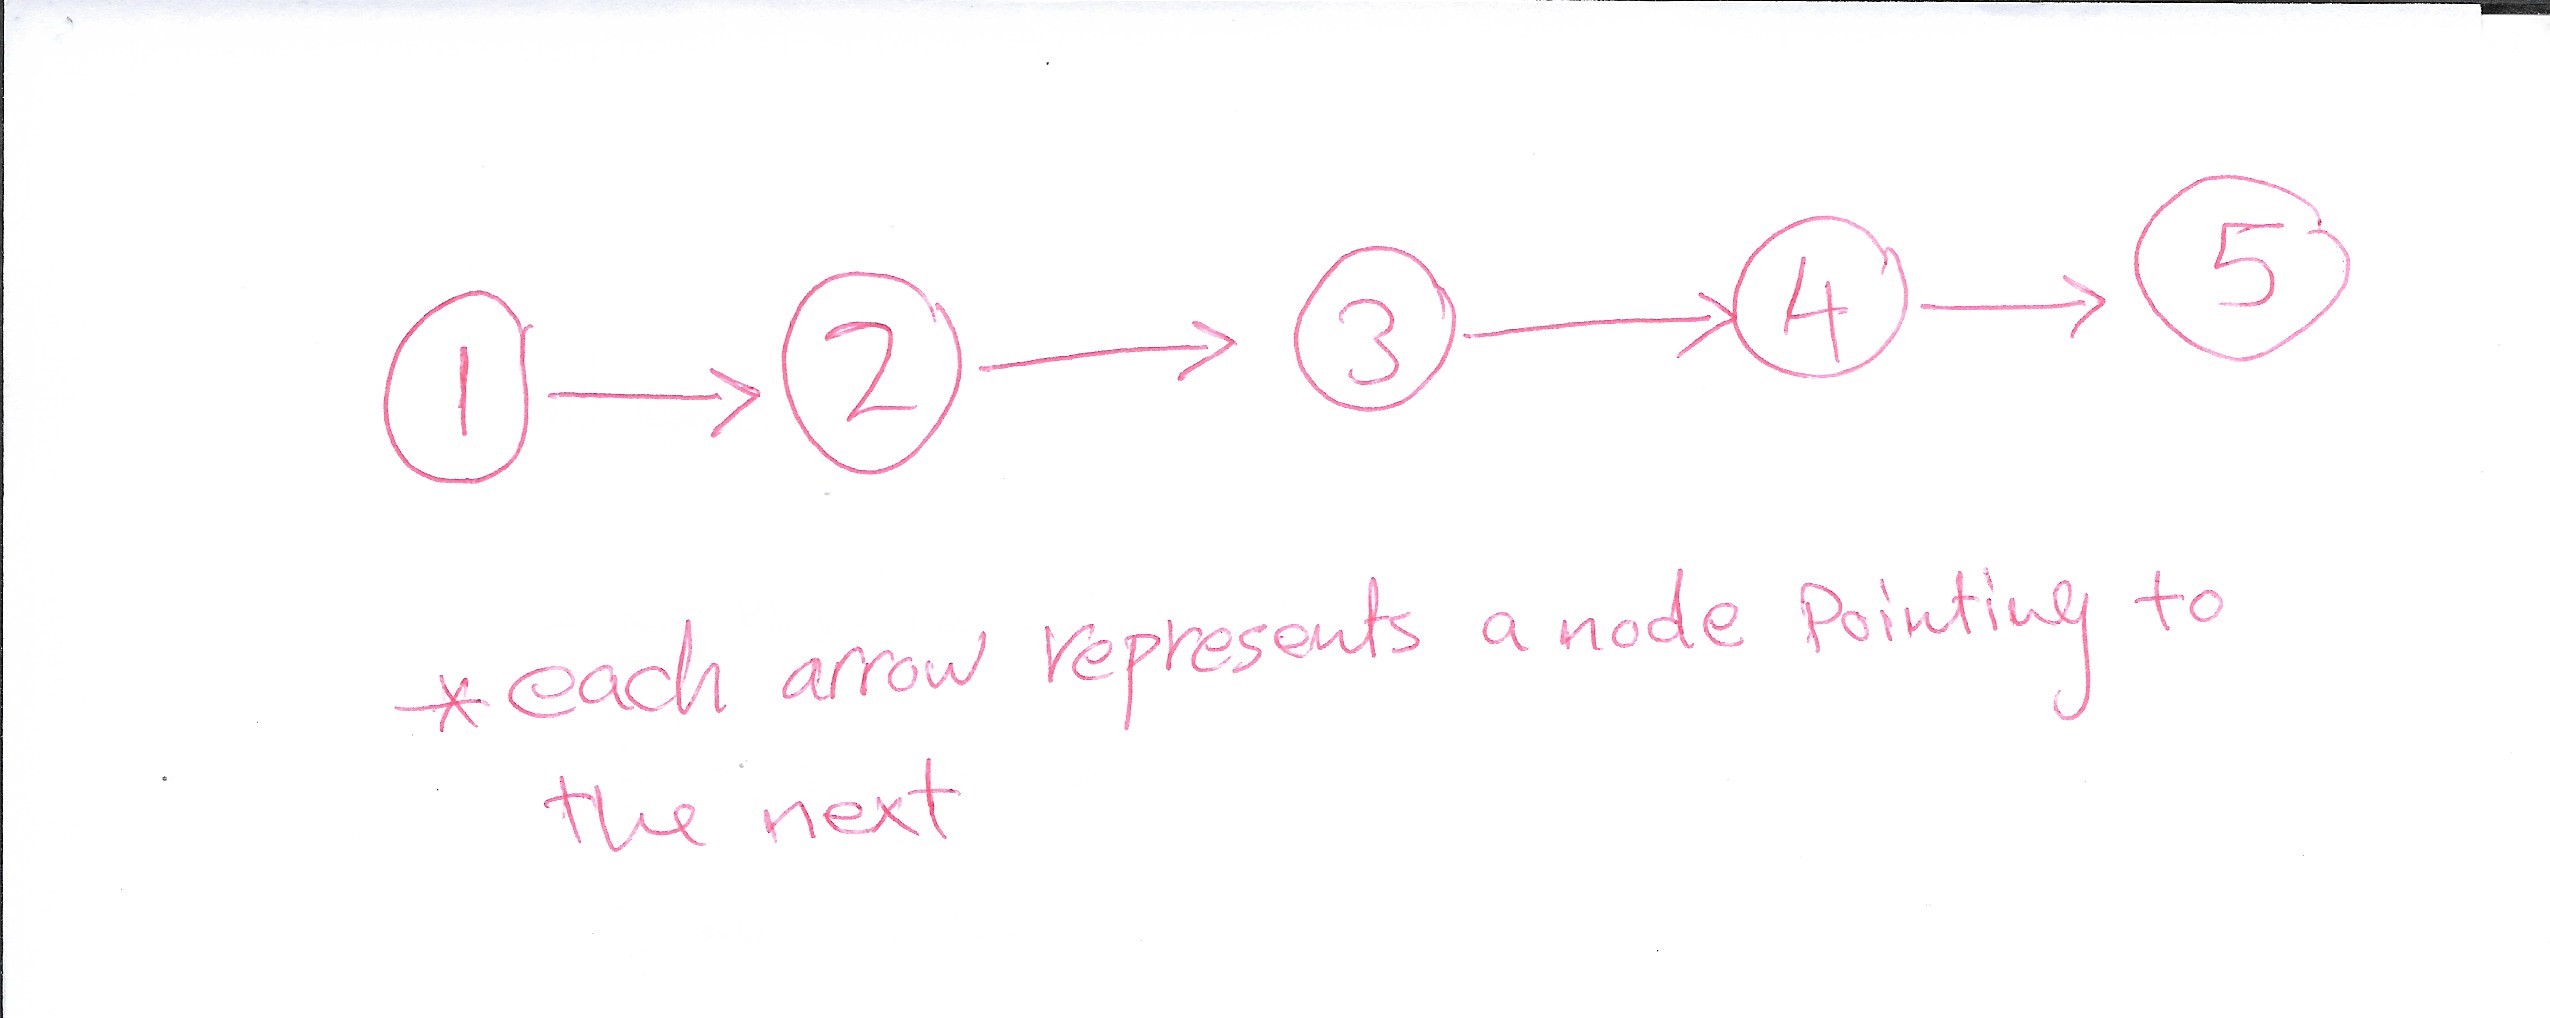 1 → 2 → 3 → 4 → 5
* each arrow represents a node Pointing to
the next